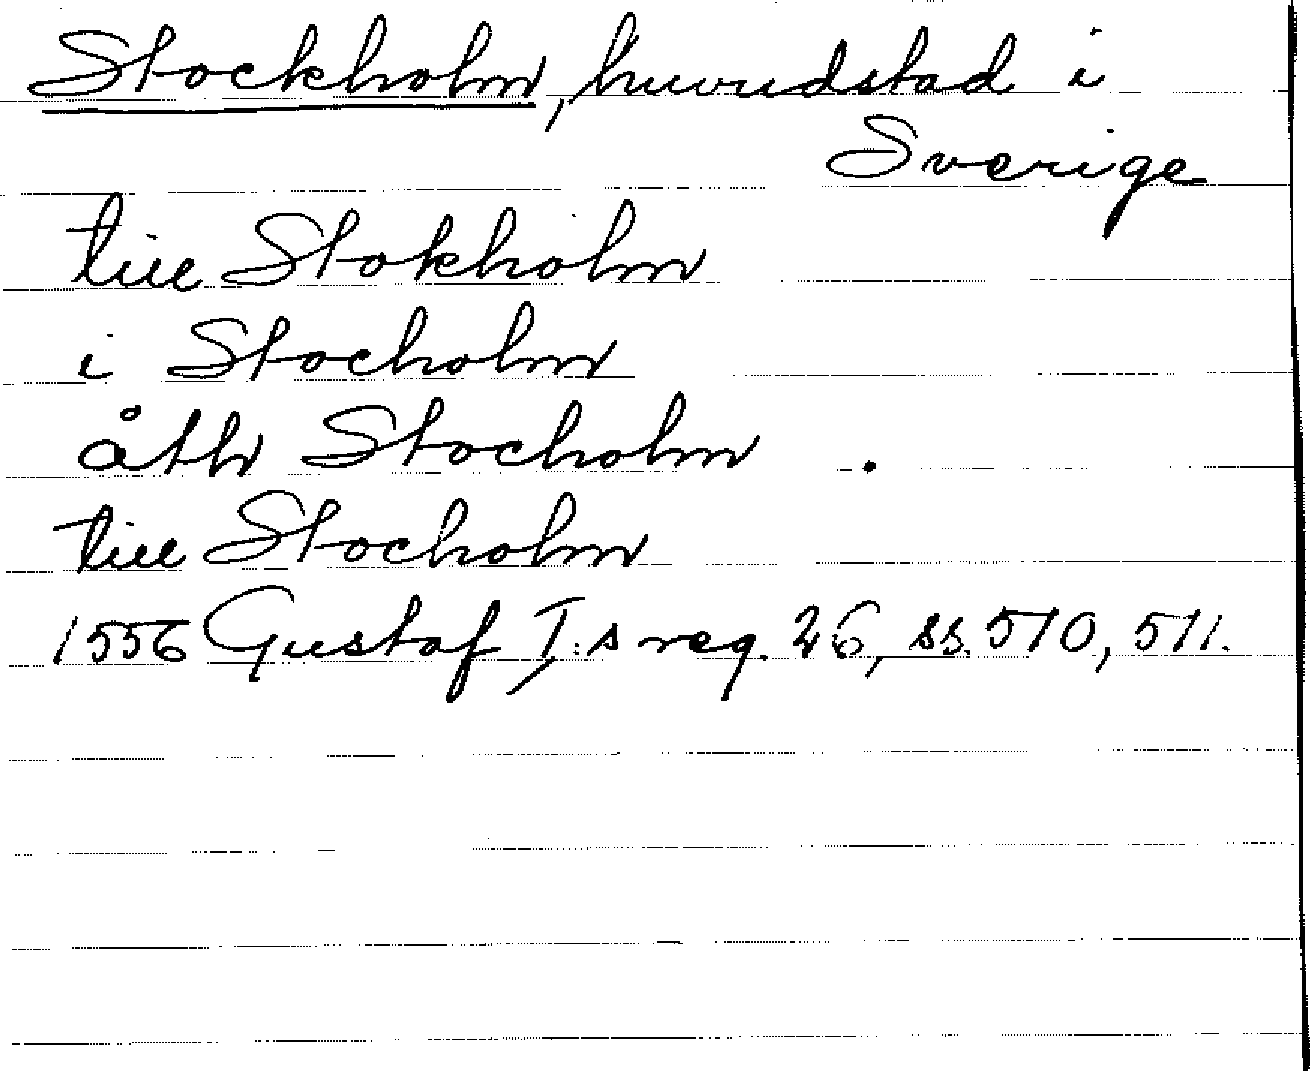 Stockholm, huvudstad i
Sverige
till Stokholm
i Stocholm
åth Stocholm .
till Stocholm
1556 Gustaf I:s reg. 26, ss. 510, 511.